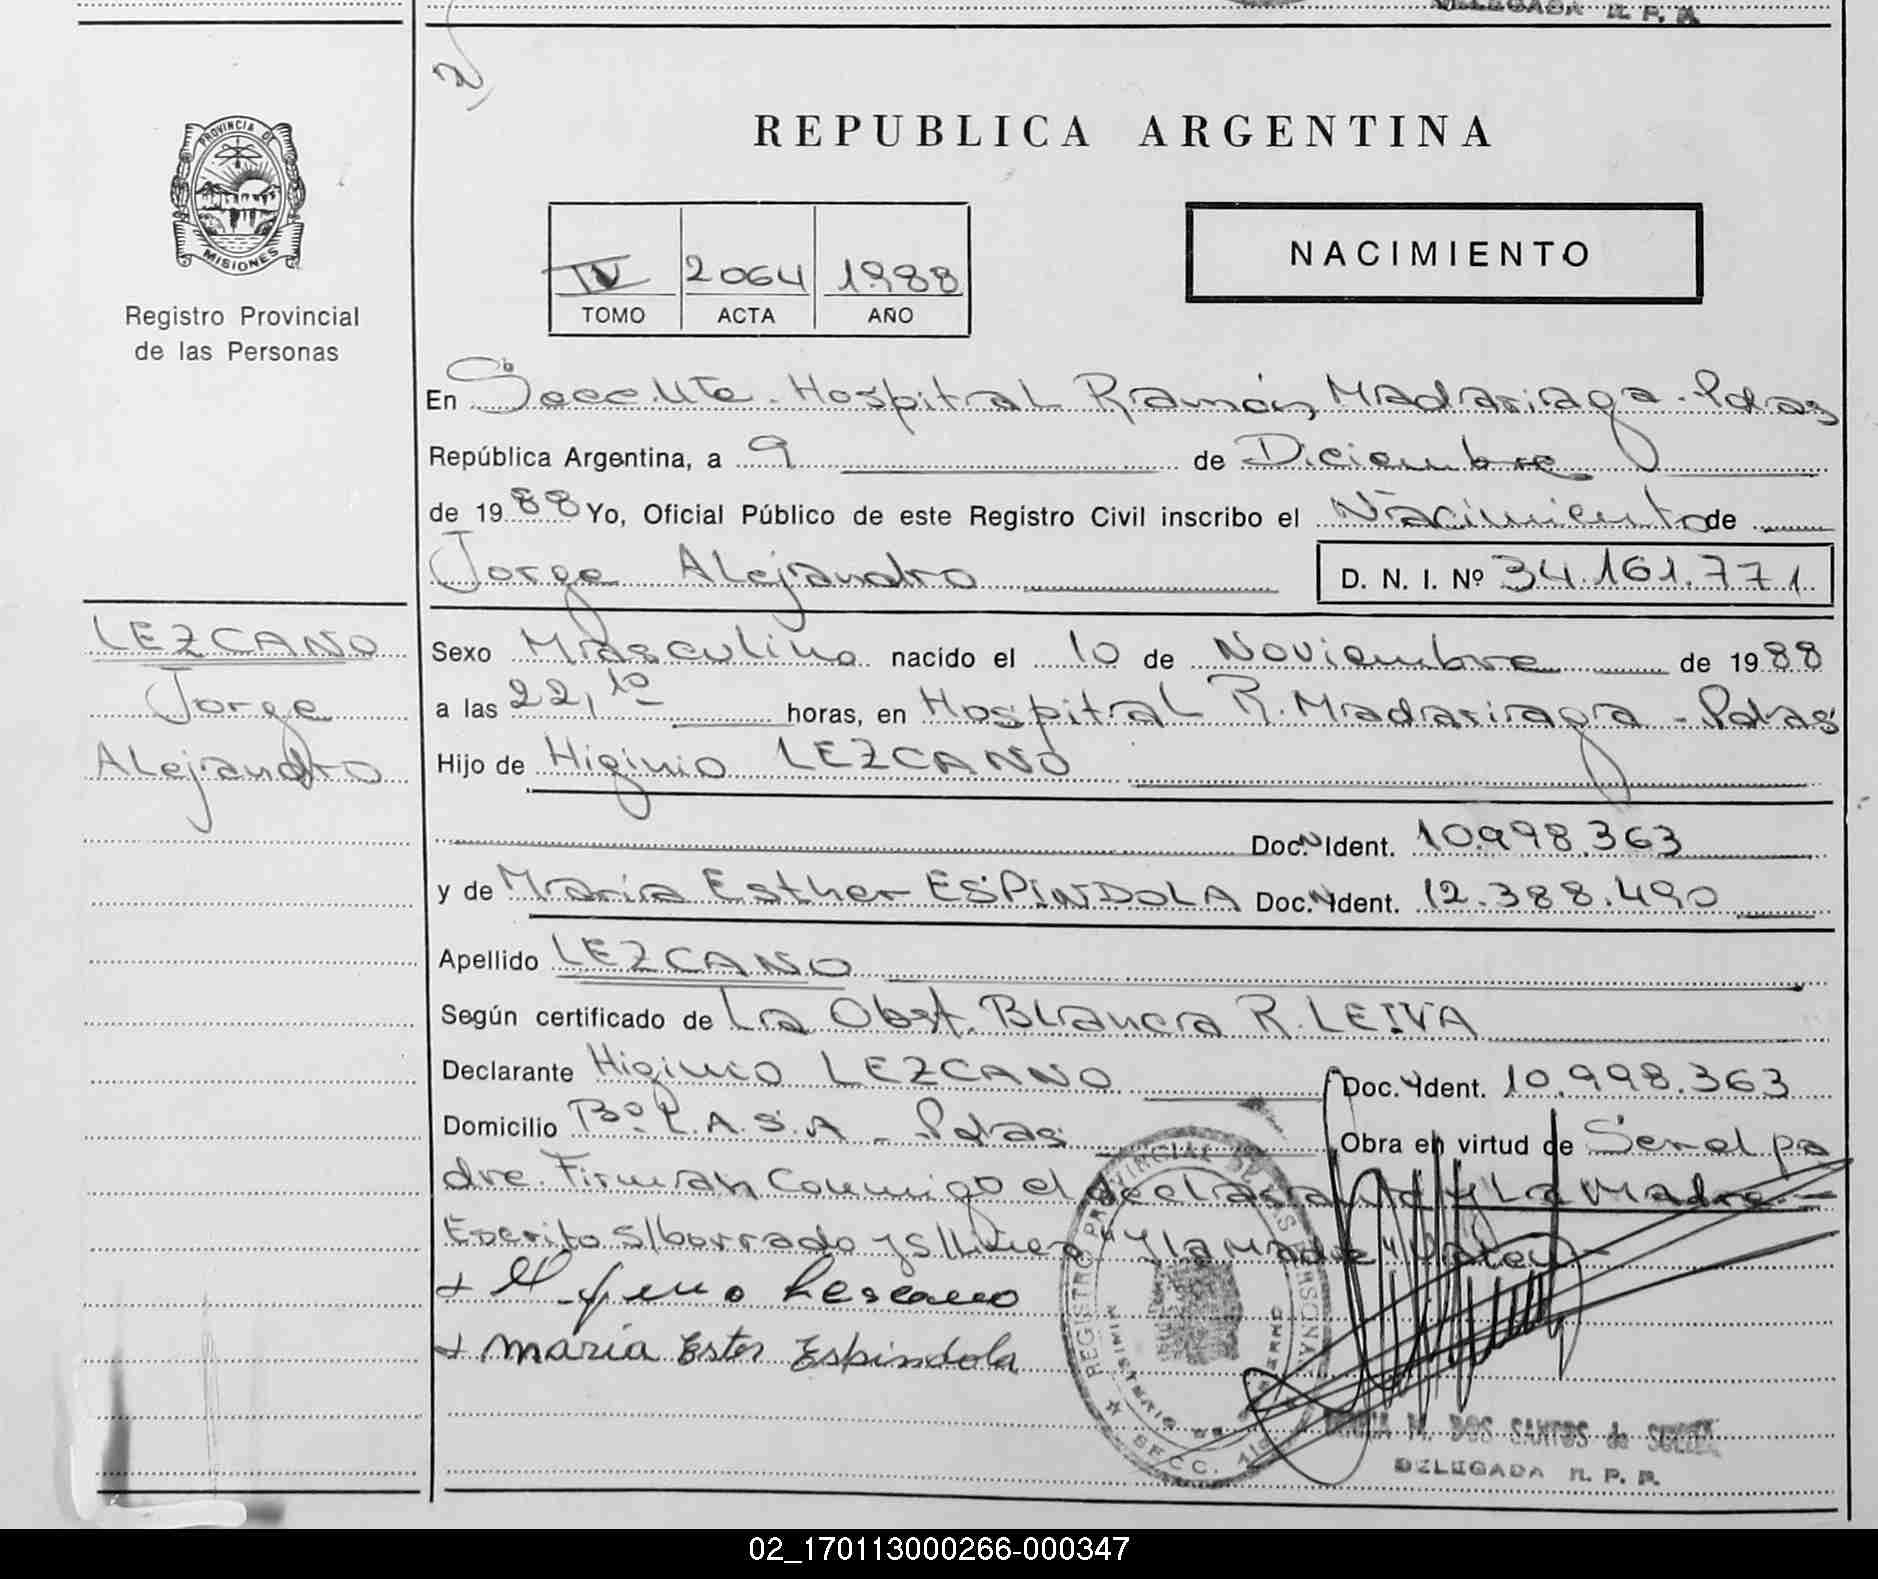 DELEGADA R. P. P.
PROVINCIA DE
MISIONES
Registro Provincial
de las Personas
REPUBLICA ARGENTINA
NACIMIENTO
IV 2064 1988
TOMO ACTA AÑO
En Secc. Hospital Ramón Madariaga - Pdas
República Argentina, a 9 de Diciembre
de 1988 Yo, Oficial Público de este Registro Civil inscribo el Nacimiento de
Jorge Alejandro D. N. I. Nº 34.161.771
LEZCANO
Jorge
Alejandro
Sexo Masculino nacido el 10 de Noviembre de 1988
a las 22,10 horas, en Hospital R. Madariaga - Pdas
Hijo de Higinio LEZCANO
Doc. Ident. 10.998.363
y de Maria Esther ESPINDOLA Doc. Ident. 12.388.490
Apellido LEZCANO
Según certificado de La Obst. Blanca R. LEIVA
Declarante Higinio LEZCANO Doc. Ident. 10.998.363
Domicilio Bº P.A.S.A - Pdas Obra en virtud de Ser el pa
dre. Firman Conmigo el declarante y La Madre.-
Escrito s/borrado y s/linea "y la Madre" Valen-
+ Higinio Lescano
+ maria Ester Espindola
REGISTRO PROVINCIAL DE LAS PERSONAS
DOS SANTOS de
DELEGADA R. P. P.
02_170113000266-000347